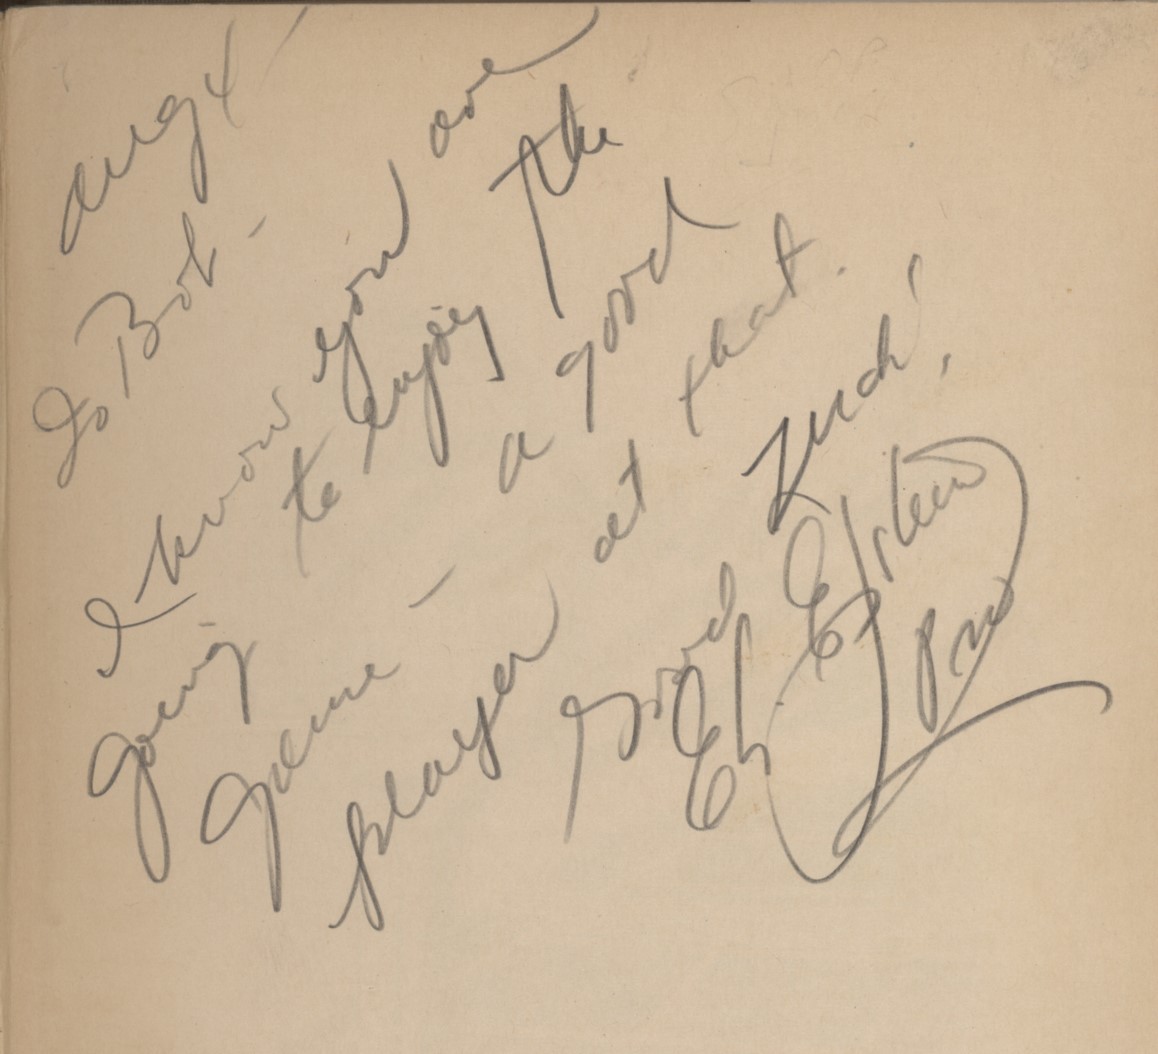 Aug 4
To Bob -
I know you are
going to enjoy the
Game - a good
player at that.
Good Luck!
Eli Epstein
Pro